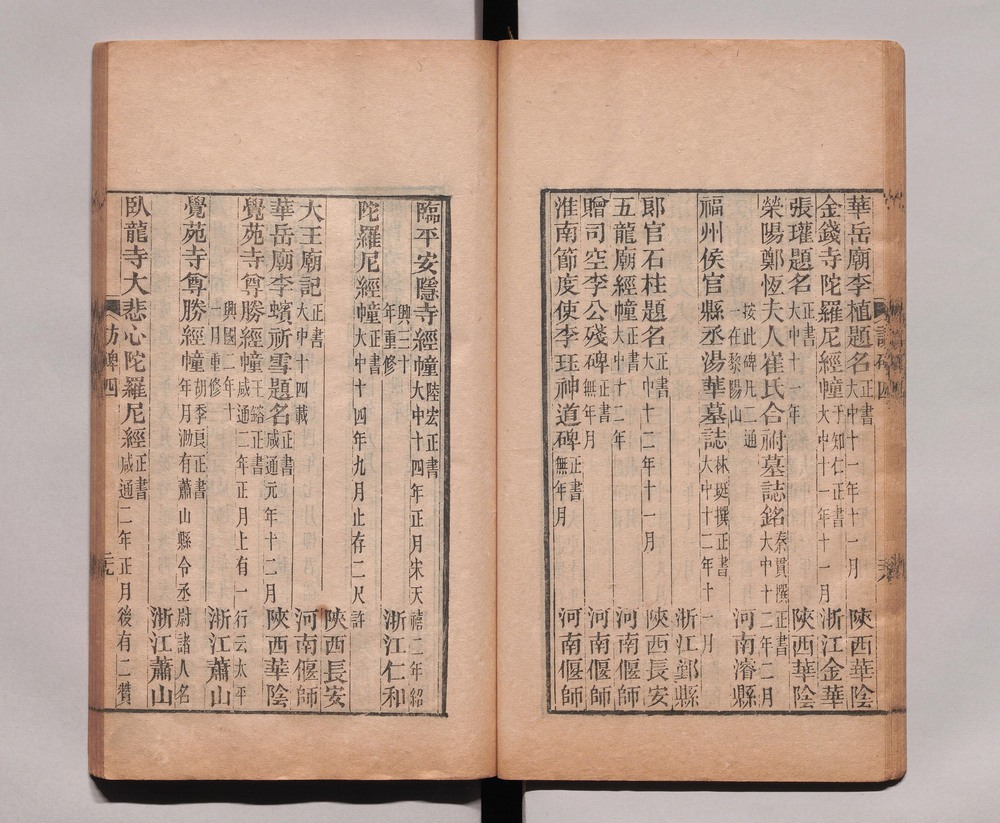 華岳廟李植題名正書大中十一年十一月 陝西華陰
金錢寺陀羅尼經幢于知仁正書大中十一年十一月 浙江金華
張瓘題名正書大中十一年 陝西華陰
滎陽鄭恆夫人崔氏合祔墓誌銘秦貫撰正書大中十二年二月
按此碑凡二通一在黎陽山 河南濬縣
福州侯官縣丞湯華墓誌林珽撰正書大中十二年十一月
浙江鄞縣
郎官石柱題名正書大中十二年十一月 陝西長安
五龍廟經幢正書大中十二年 河南偃師
贈司空李公殘碑正書無年月 河南偃師
淮南節度使李珏神道碑正書無年月 河南偃師
臨平安隱寺經幢陸宏正書大中十四年正月宋天禧二年紹
興三十年重修 浙江仁和
陀羅尼經幢正書大中十四年九月止存二尺許
陝西長安
大王廟記正書大中十四載 河南偃師
華岳廟李蠙祈雪題名正書咸通元年十二月 陝西華陰
覺苑寺尊勝經幢王鎔正書咸通二年正月上有一行云太平
興國二年十一月重修 浙江蕭山
覺苑寺尊勝經幢胡季良正書年月泐有蕭山縣令丞尉諸人名
浙江蕭山
臥龍寺大悲心陀羅尼經正書咸通二年正月後有二贊
訪碑四